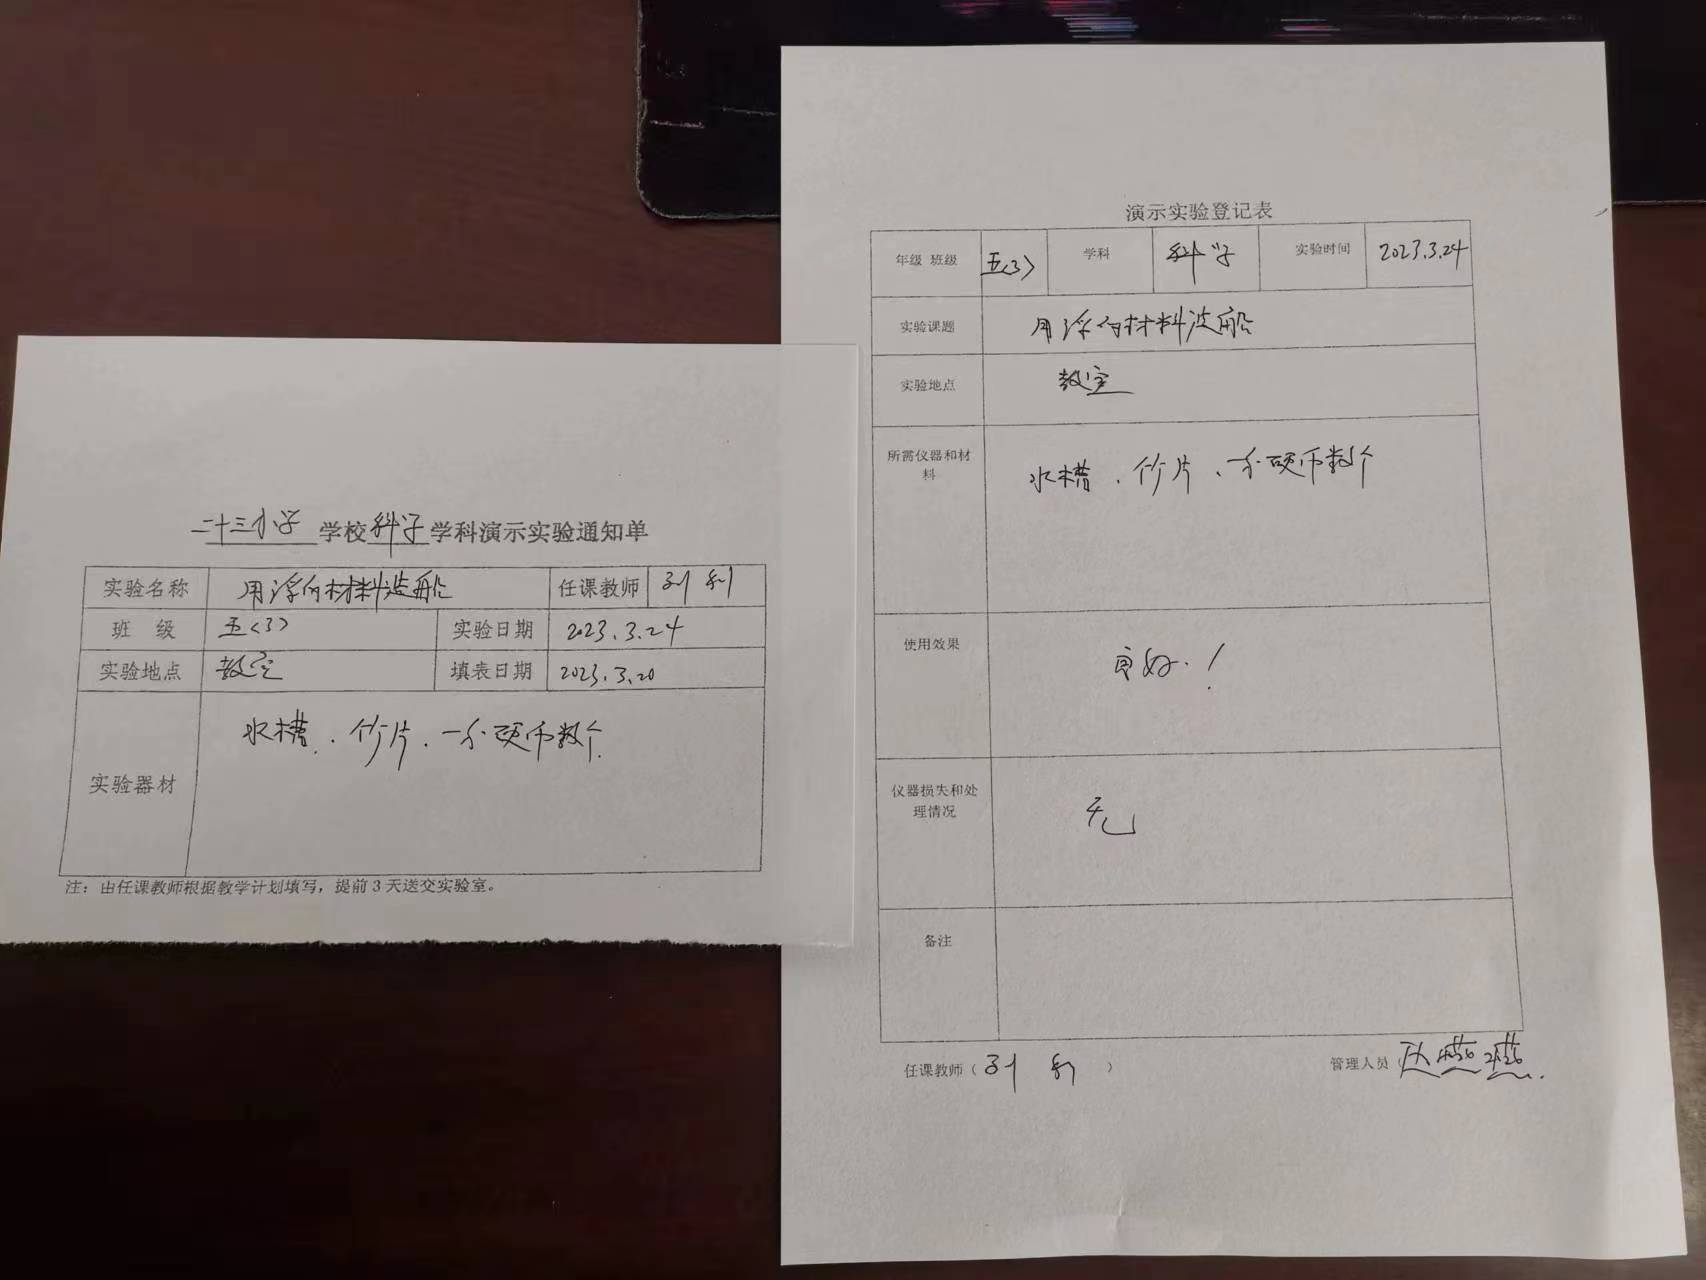 二十三小学 学校 科学 学科演示实验通知单
实验名称 用浮的材料造船 任课教师 刘利
班 级 五(3) 实验日期 2023.3.24
实验地点 教室 填表日期 2023.3.20
实验器材 水槽、竹片、一分硬币数个
注：由任课教师根据教学计划填写，提前3天送交实验室。
演示实验登记表
年级 班级 五(3) 学科 科学 实验时间 2023.3.24
实验课题 用浮的材料造船
实验地点 教室
所需仪器和材
料
水槽、竹片、一分硬币数个
使用效果 良好.！
仪器损失和处
理情况
无
备注
任课教师（刘利） 管理人员（燕燕